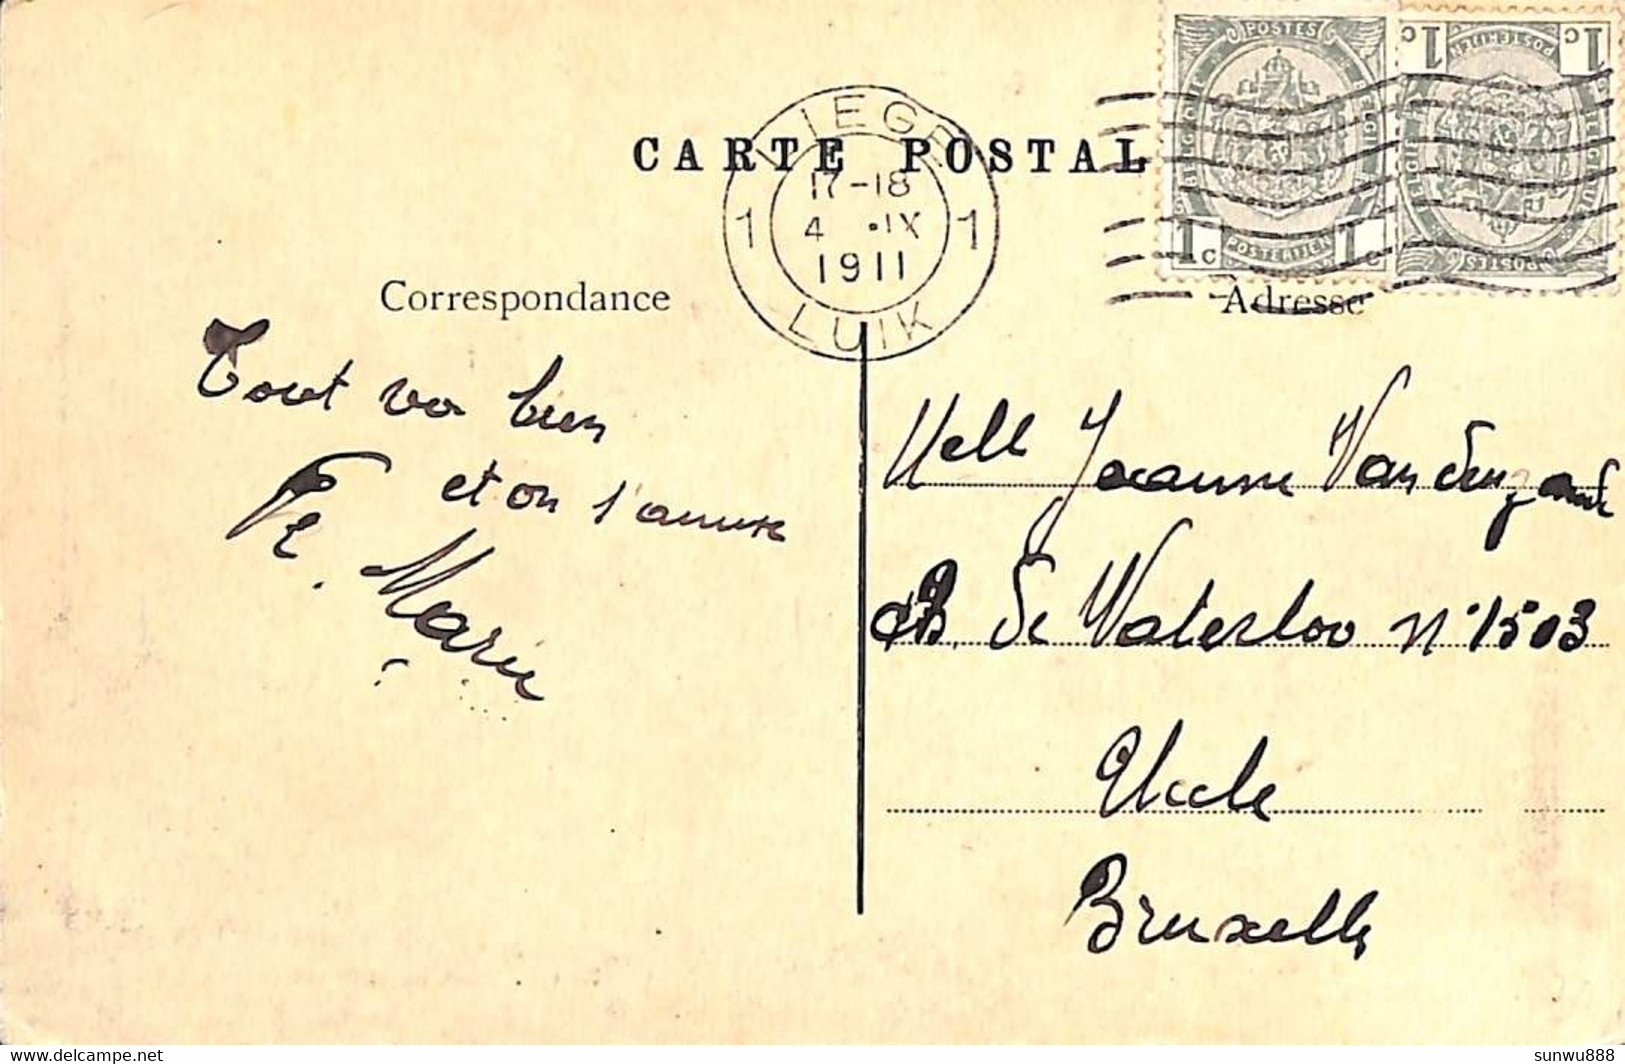 CARTE POSTAL
LIEGE
17-18
1 4 ·IX 1
1911
LUIK
POSTES
BELGIQUE BELGIE
1c POSTERIJEN 1c
1c POSTERIJEN 1c
BELGIE BELGIQUE
POSTES
Correspondance
Adresse
Tout va bien
et on s'amuse
Marie
Melle Jeanne
B. de Waterloo n° 1503
Uccle
Bruxelles
delcampe.net
sunwu888